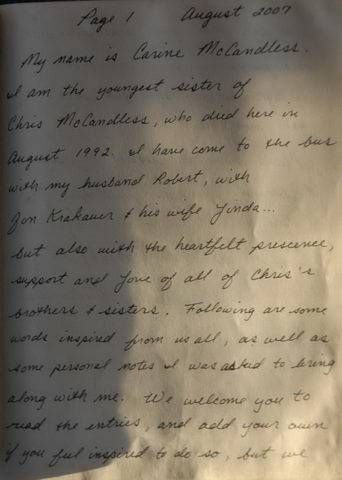 Page 1 August 2007
My name is Carine McCandless.
I am the youngest sister of
Chris McCandless, who died here in
August 1992. I have come to the bus
with my husband Robert, with
Jon Krakauer & his wife Linda...
but also with the heartfelt prescence,
support and love of all of Chris's
brothers & sisters. Following are some
words inspired from us all, as well as
some personal notes I was asked to bring
along with me. We welcome you to
read the entries, and add your own
if you feel inspired to do so, but we